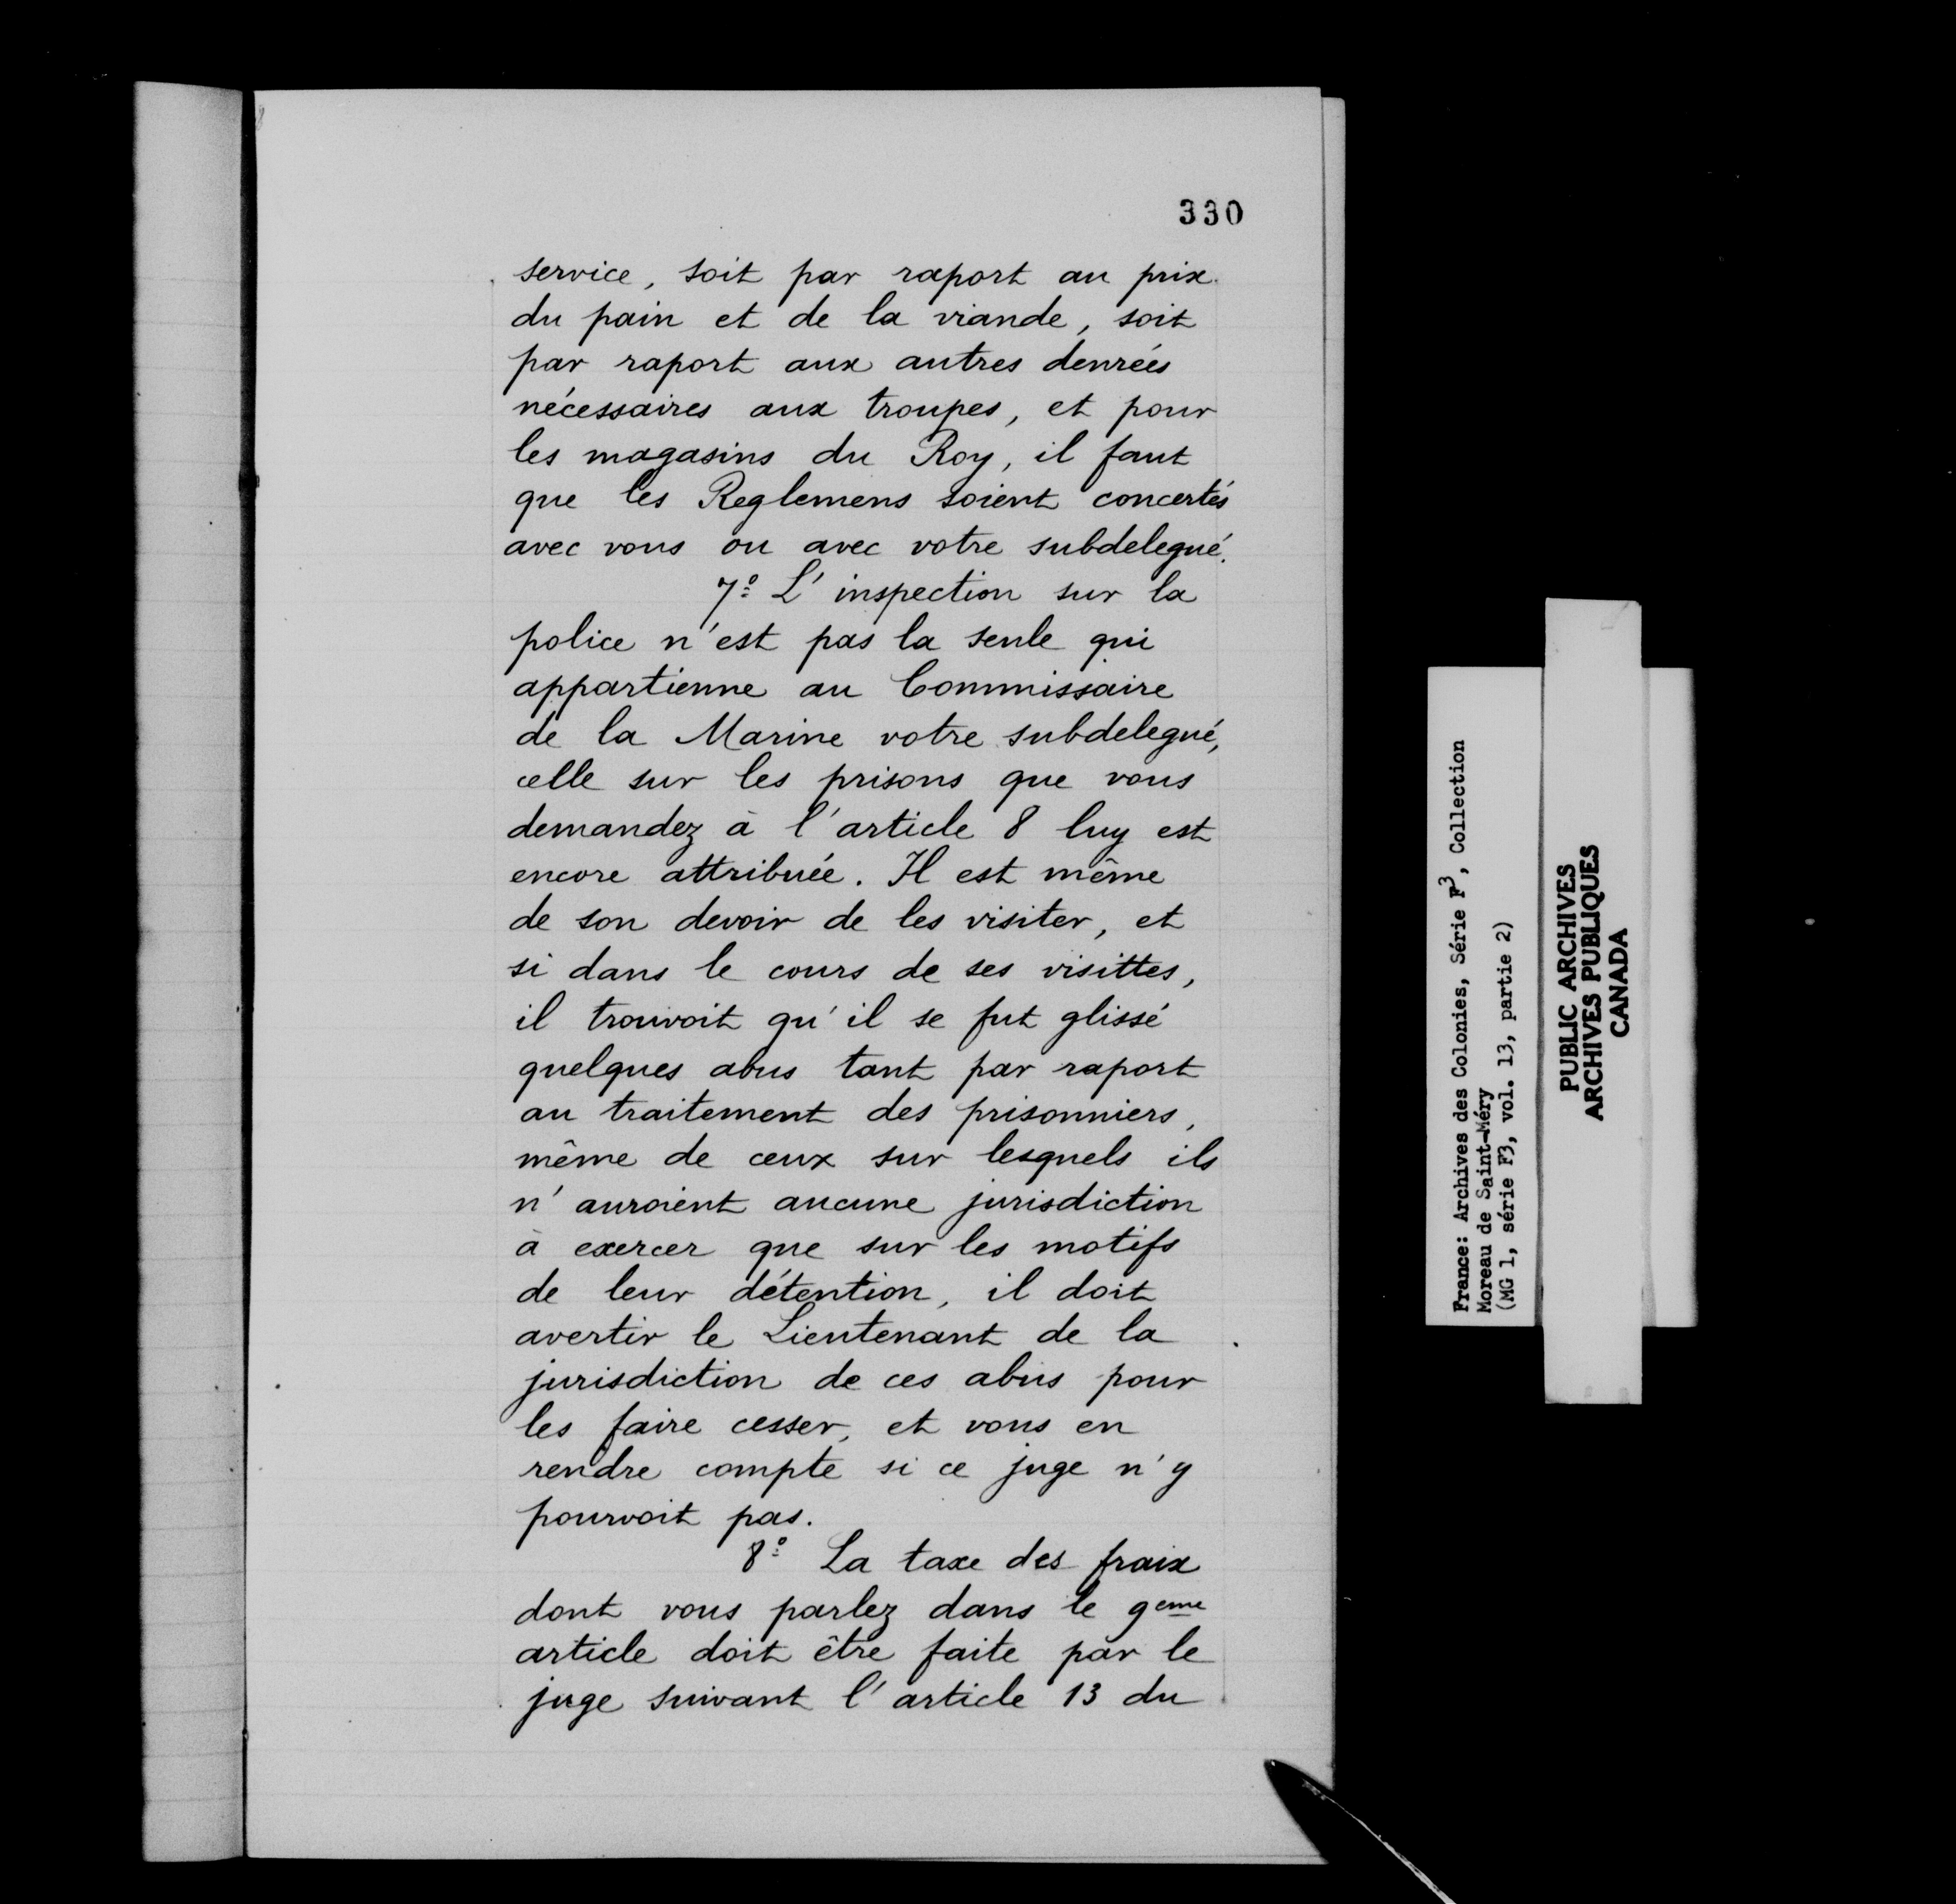 330
service, soit par raport au prix
du pain et de la viande, soit
par raport aux autres denrées
nécessaires aux troupes, et pour
les magasins du Roy, il faut
que les Reglemens soient concertés
avec vous ou avec votre subdelegué.
7º L'inspection sur la
police n'est pas la seule qui
appartienne au Commissaire
de la Marine votre subdelegué,
celle sur les prisons que vous
demandez à l'article 8 luy est
encore attribuée. Il est même
de son devoir de les visiter, et
si dans le cours de ses visittes,
il trouvoit qu'il se fut glissé
quelques abus tant par raport
au traitement des prisonniers,
même de ceux sur lesquels ils
n'auroient aucune jurisdiction
à exercer que sur les motifs
de leur détention, il doit
avertir le Lieutenant de la
jurisdiction de ces abus pour
les faire cesser, et vous en
rendre compte si ce juge n'y
pourvoit pas.
8º La taxe des fraix
dont vous parlez dans le 9eme
article doit être faite par le
juge suivant l'article 13 du
France: Archives des Colonies, Série F3, Collection
Moreau de Saint-Méry
(MG 1, série F3, vol. 13, partie 2)
PUBLIC ARCHIVES
ARCHIVES PUBLIQUES
CANADA